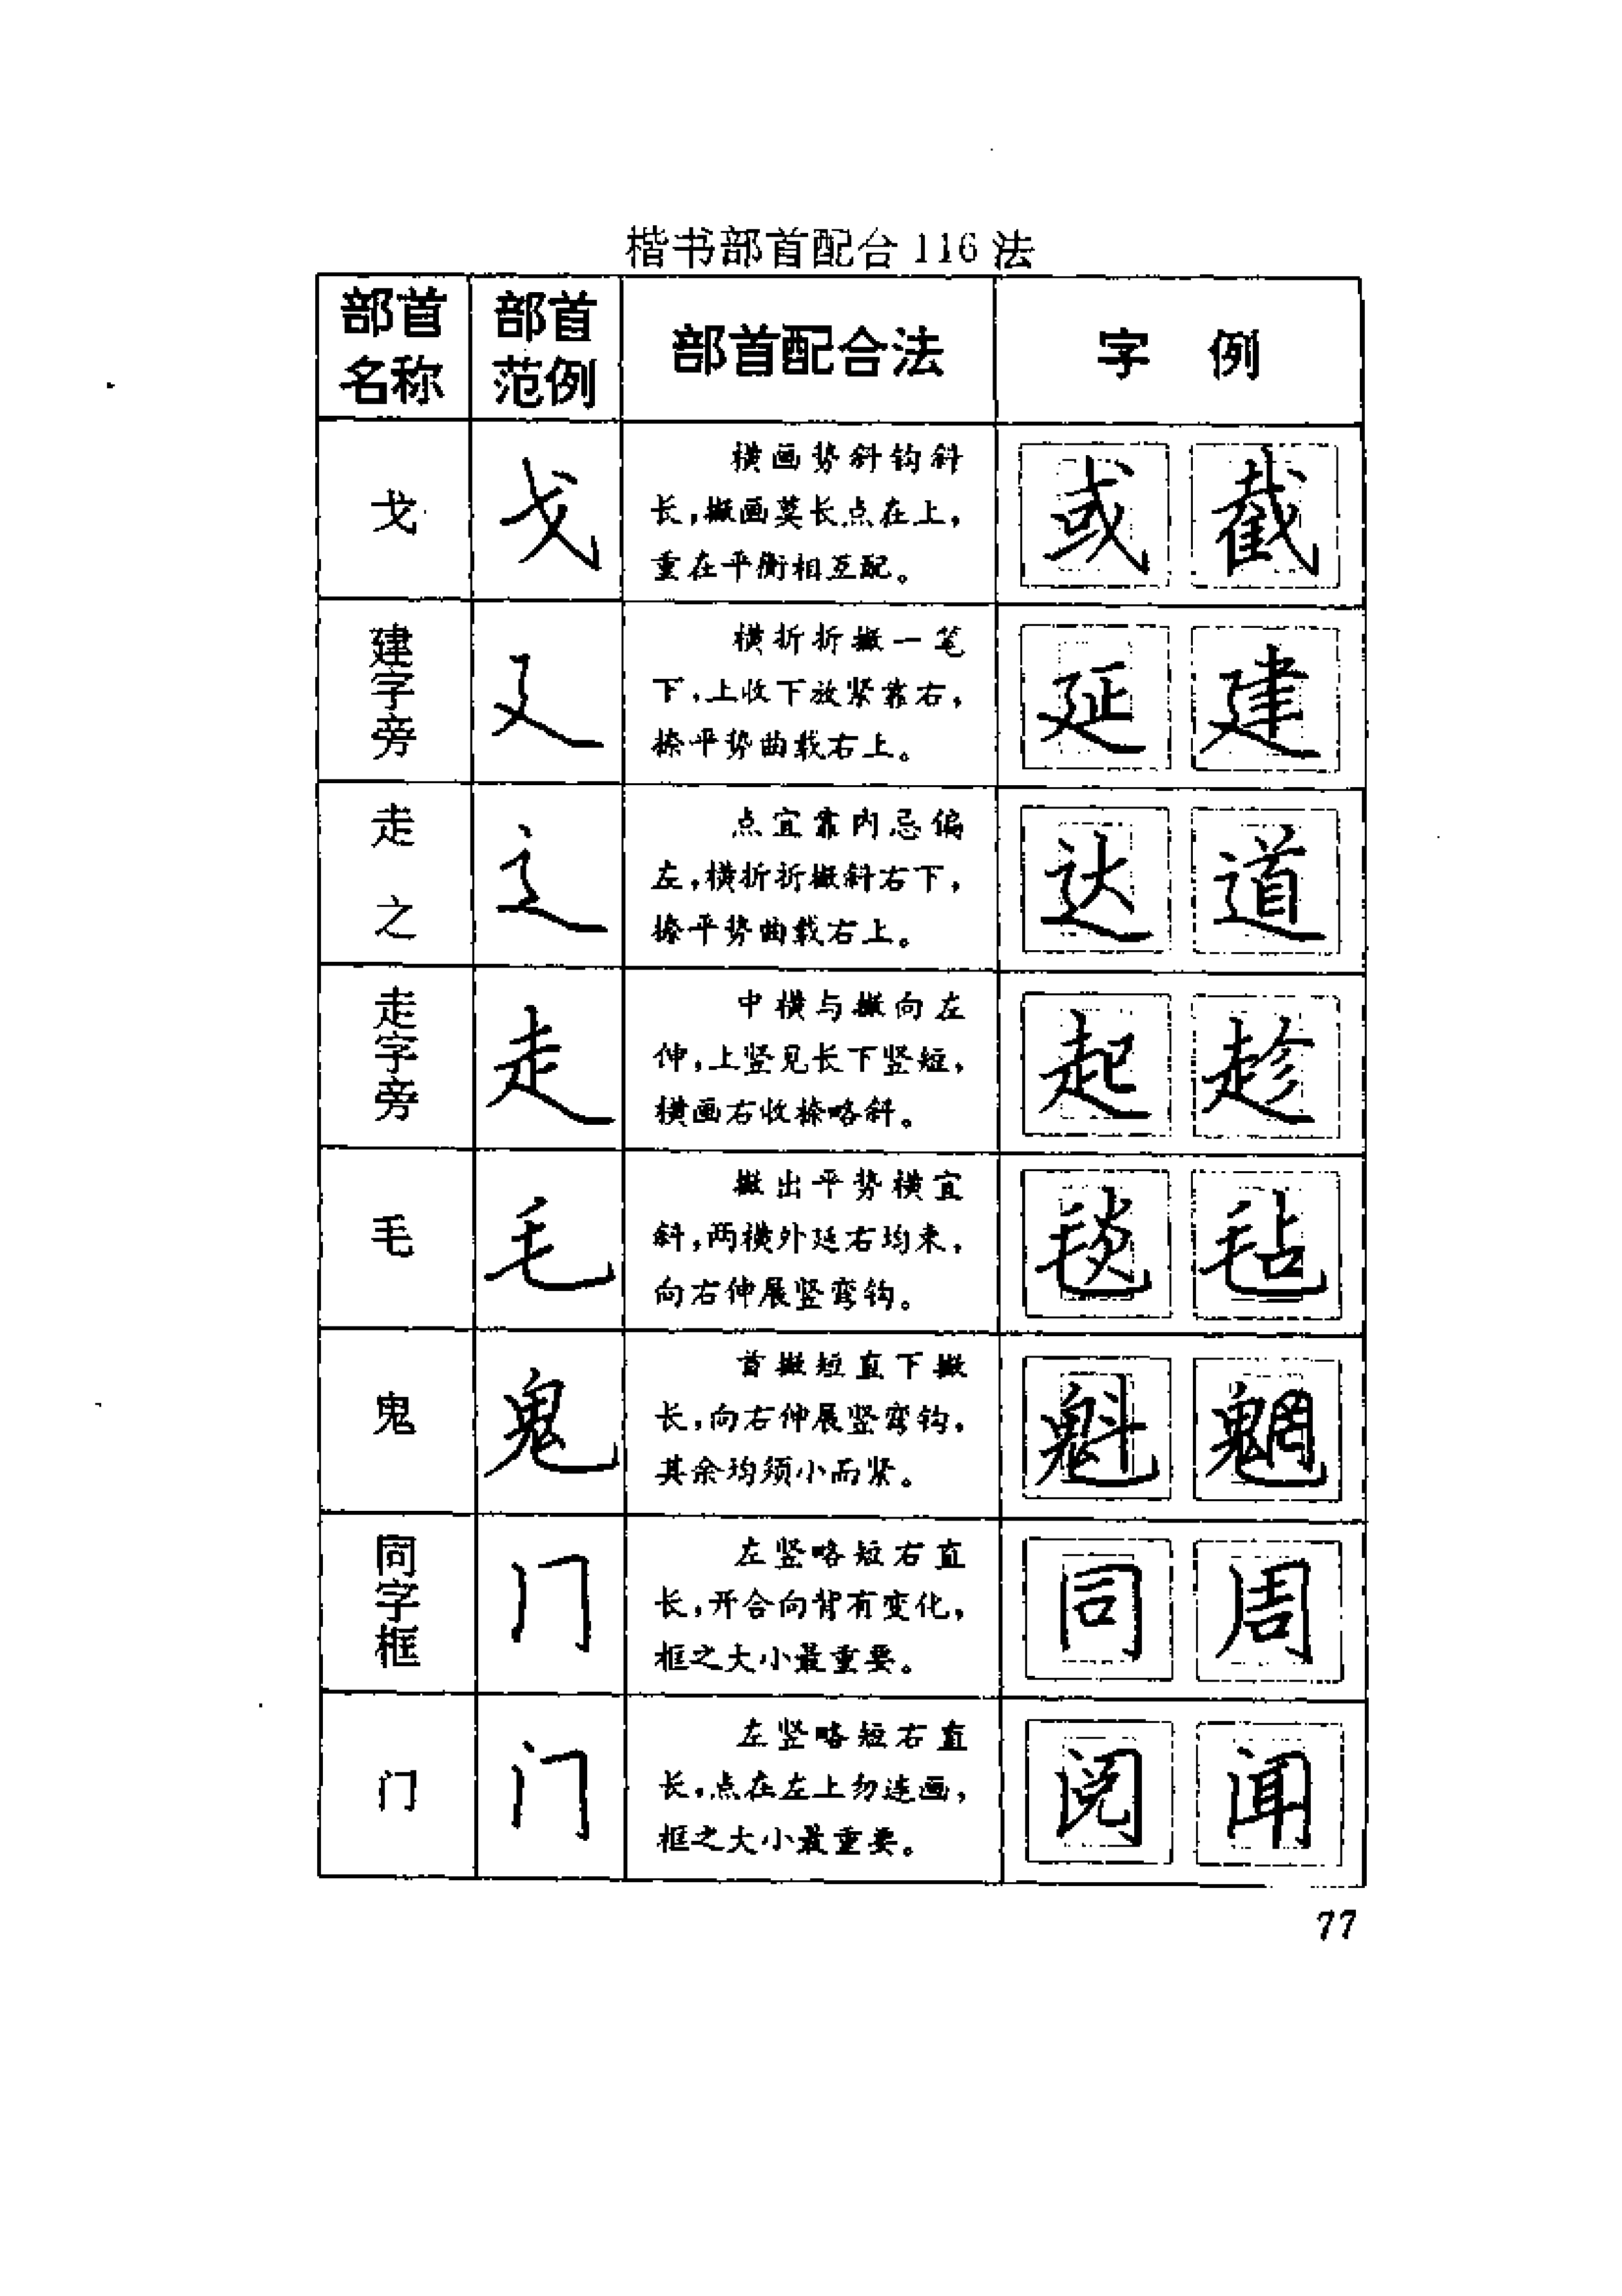 楷书部首配合116法
部首名称 部首范例 部首配合法 字 例
戈 戈 横画势斜钩斜
长，撇画莫长点在上，
重在平衡相互配。
或 截
建字旁 廴 横折折撇一笔
下，上收下放紧靠右，
捺平势曲载右上。
延 建
走之 辶 点宜靠内忌偏
左，横折折撇斜右下，
捺平势曲载右上。
达 道
走字旁 走 中横与撇向左
伸，上竖见长下竖短，
横画右收捺略斜。
起 趁
毛 毛 撇出平势横宜
斜，两横外延右均来，
向右伸展竖弯钩。
毯 毡
鬼 鬼 首撇短直下撇
长，向右伸展竖弯钩，
其余均须小而紧。
魁 魍
同字框 冂 左竖略短右直
长，开合向背有变化，
框之大小最重要。
同 周
门 门 左竖略短右直
长，点在左上勿连画，
框之大小最重要。
阅 闻
77